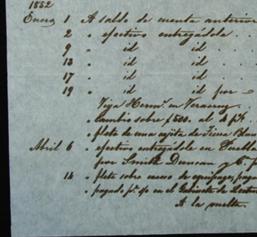 1852
Enero 1 A saldo de cuenta anterior
2 " efectivo entregádole . .
9 " id id . .
13 " id id . .
17 " id id . .
19 " id id por
Viya Hermo. en Veracruz
" cambio sobre $500. al 4 p%
" flete de una cajita de
Abril 6 " efectivo entregádole en Puebla
por Smith Duncan y C.
14 " flete sobre
pagado en el de
A la vuelta.